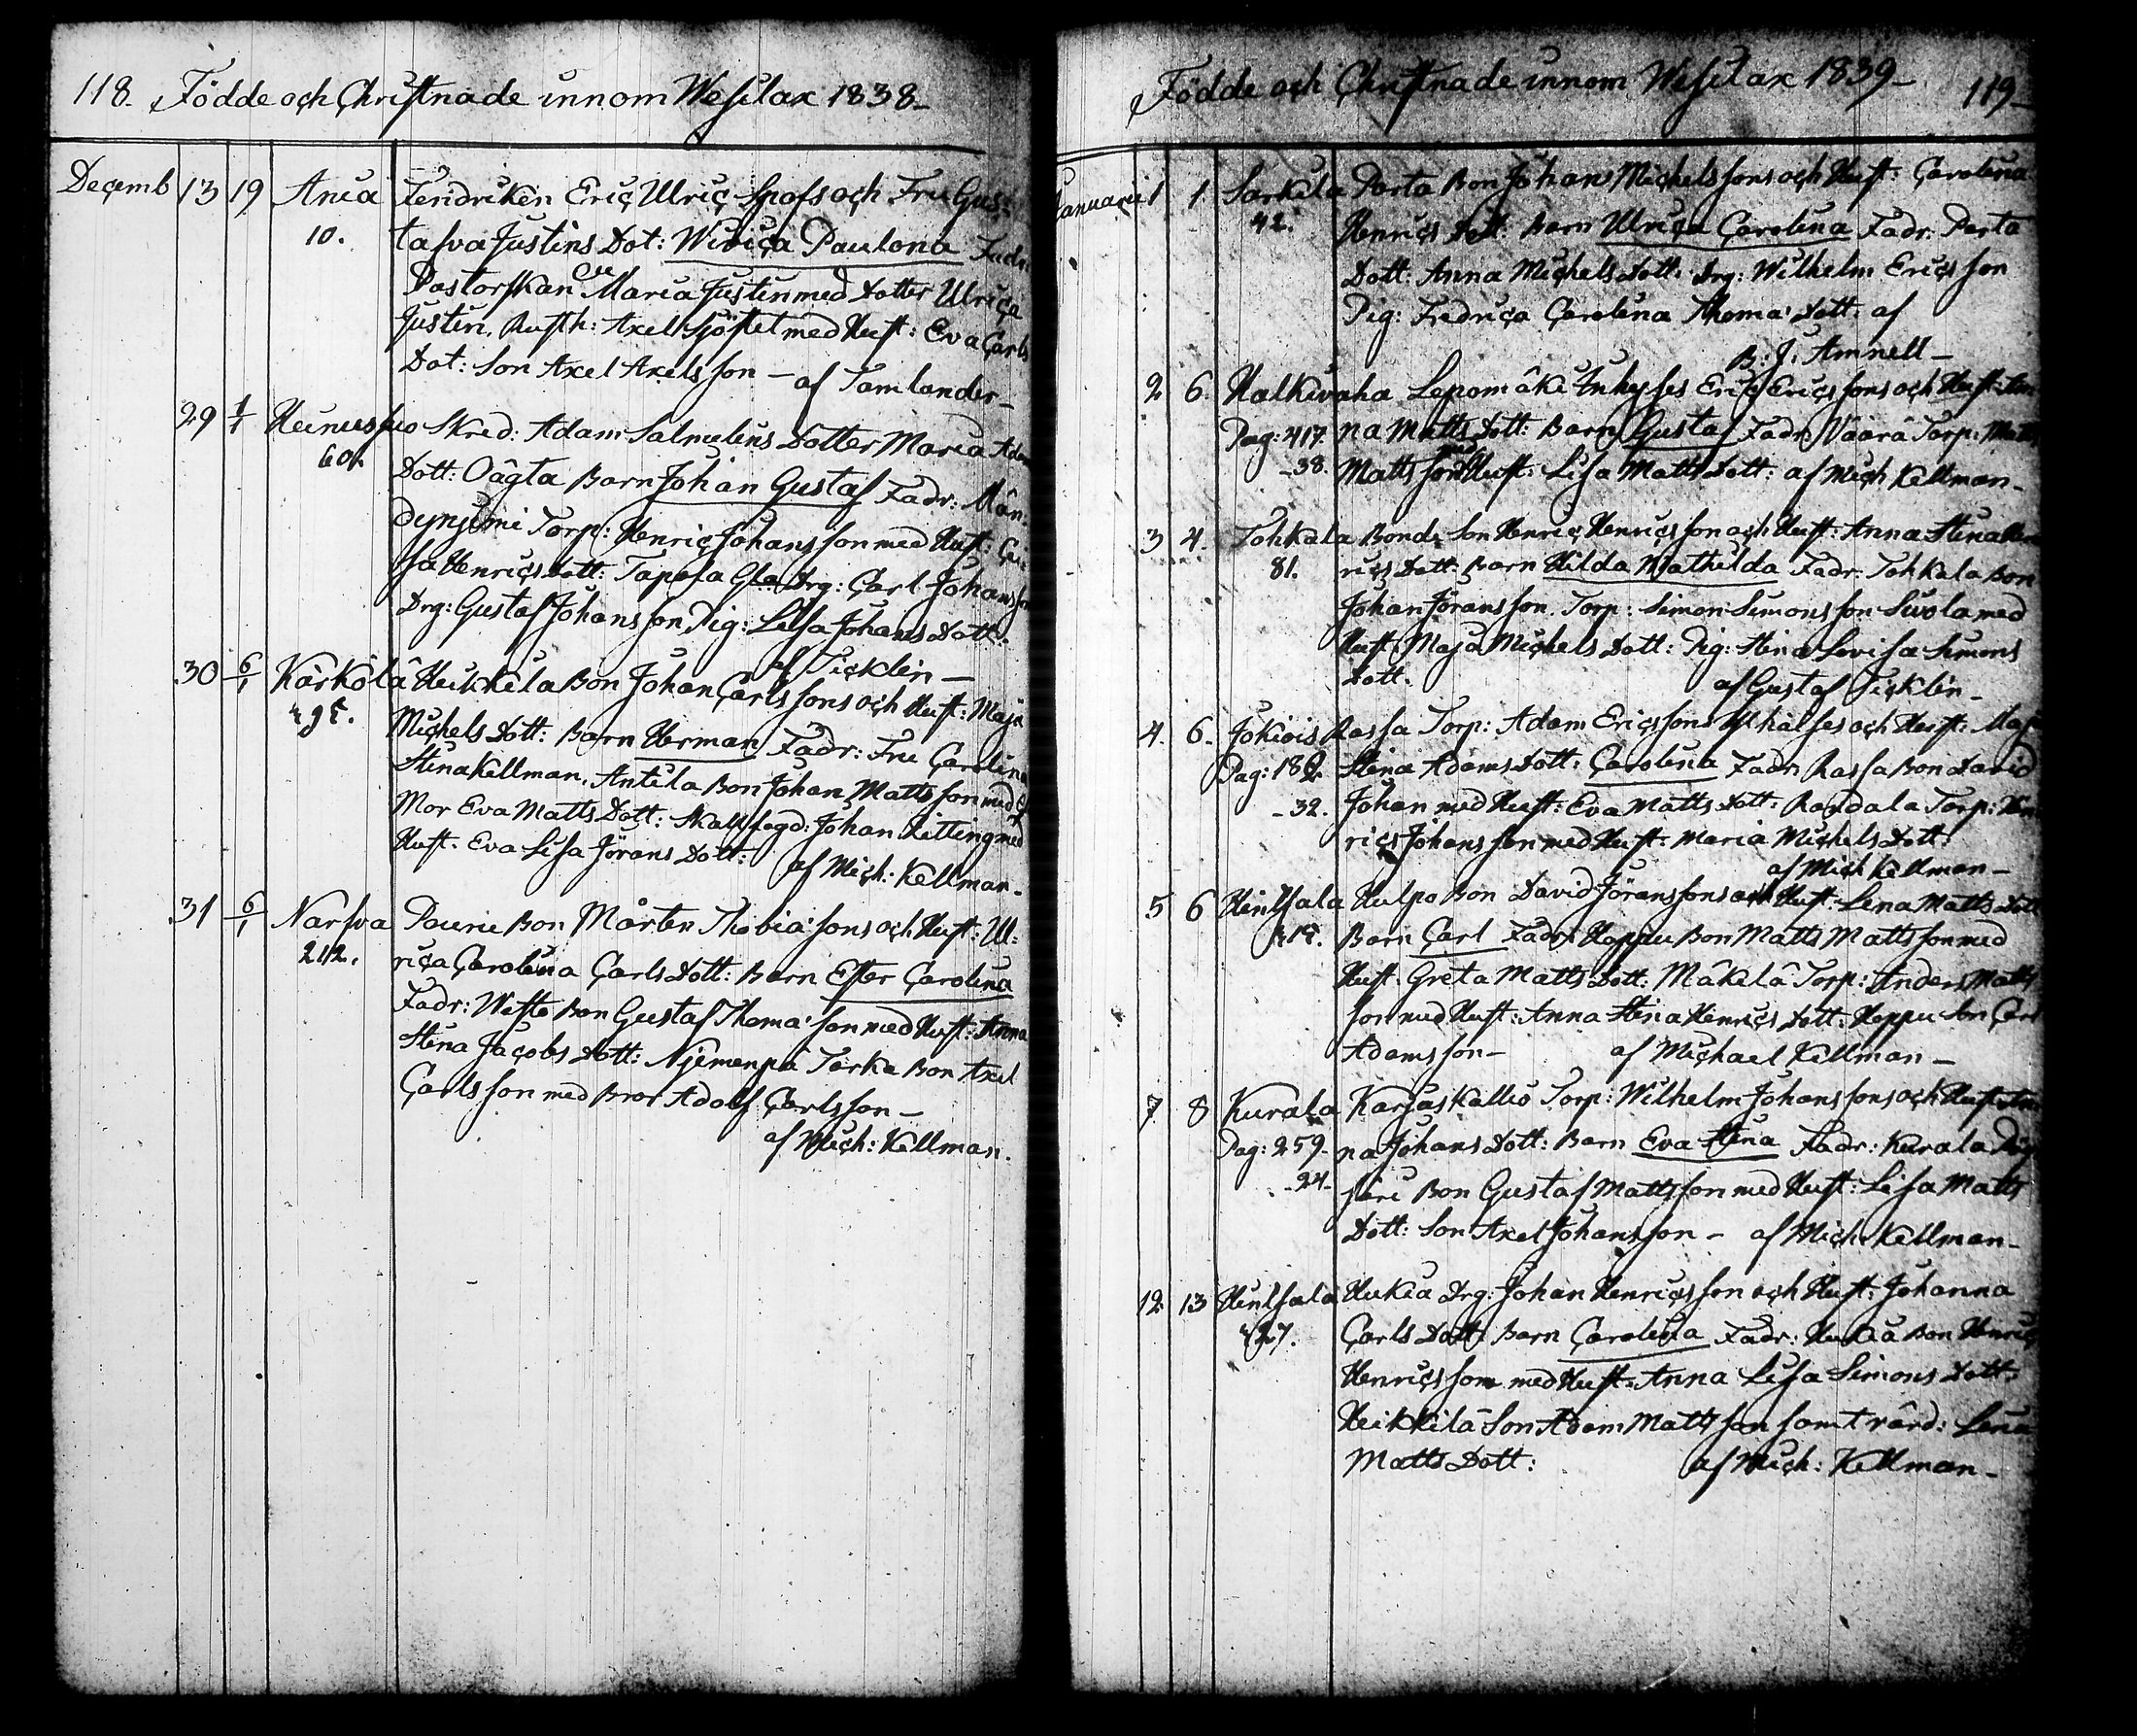 118. Födde och Christnade innom Wesilax 1838-
Decemb 13 19 Ania Fendriken Eric Ulric Spofs och Fru Gus:
10. tafva Justins Dot: Wivica Paulona Fadr:
Pastorskan Maria Justin med Dotter Ulrica
Justin, Rusth: Axel Sjöstet med Hust: Eva Carls
Dot: Son Axel Axelsson - af Tamlander-
29 1/1 Heinusuo Skred: Adam Salmelins Dotter Maria Adams
60. Dott: Oägta Barn Johan Gustaf Fadr: Män:
Torp: Henric Johansson med Hust:
sa Henrics Dott: Tapola Drg: Carl Johansson
Drg: Gustaf Johansson Pig: Lisa Johans Dott:
af Ticklén -
30 6/1 Kärkölä Heikkilä Bon Johan Carlssons och Hust: Maja
Michels Dott: Barn Herman Fadr: Fru Carolina
Stina Kellman, Antila Bon Johan Mattsson med
Mor Eva Matts Dott: Skallfogd: Johan Litting med
Hust: Eva Lisa Jörans Dott: af Mich: Kellman-
31 6/1 Narfva Paurie Bon Mårten Thobiæ sons och Hust: Ul:
212. rica Carolina Carls Dott: Barn Ester Carolina
Fadr: Westo Bon Gustaf Thomæ son med Hust: Anna
Stina Jacobs Dott: Njemenpä Torka Bon Axel
Carlsson med Bror Adolf Carlsson -
af Mich: Kellman.
Födde och Christnade innom Wesilax 1839- 119-
Januarii 1 1. Sarkila Parta Bon Johans Michelssons och Hust: Carolina
42. Henrics Dott: Barn Ulrica Carolina Fadr: Parta
Dott: Anna Michels Dott: Drg: Wilhelm Ericsson
Pig: Fredrica Carolina Thomæ Dott: af
B: J: Amnell -
2 6. Halkivaha Lepomäki Inhyses Eric Ericssons och Hust:
Pag: 417. na Matts Dott: Barn Gustaf Fadr: Väärä Torp: Matts
-38. Mattsson Hust: Lisa Matts Dott: af Mich Kellman-
3 4. Tohkala Bonde Son Henric Henricsson och Hust: Anna Stina Hen
81. rics Dott: Barn Hilda Mathilda Fadr: Tohkala Bon
Johan Göransson. Torp: Simon Simonsson Sivola med
Hust: Maja Michels Dott: Pig: Stina Lovisa Simons
Dott. af Gustaf Ticklén-
4. 6. Jokiois Rassa Torp: Adam Ericssons och Hust: Maja
Pag: 182. Stina Adams Dott: Carolina Fadr: Rassa Bon David
-32. Johan med Hust: Eva Matts Dott: Randala Torp: Hen
rics Johansson med Hust: Maria Michels Dott:
af Mich Kellman -
5 6 Hinsala Hulpo Bon David Jöranssons och Hust: Lena Matts Dott
Barn Carl Fadr: Hoppu Bon Matts Mattsson med
Hust: Greta Matts Dott: Mäkelä Torp: Anders Matts
son med Hust: Anna Stina Henrics Dott: Hoppu Son Carl
Adamsson - af Michael Kellman -
7. 8 Kurala Karjaskallio Torp: Wilhelm Johanssons och Hust:
Pag: 259- na Johans Dott: Barn Eva Stina Fadr: Kurala
-24- Bon Gustaf Mattsson med Hust: Lisa Matts
Dott: Son Axel Johansson - af Mich: Kellman-
12 13 Hinsala Hukia Drg: Johan Henricsson och Hust: Johanna
Carls Dott: Barn Carolina Fadr: Hukia Bon Henric
Henricsson med Hust: Anna Lisa Simons Dott:
Heikkilä Son Adam Mattsson samt vård: Lena
Matts Dott: af Mich: Kellman-